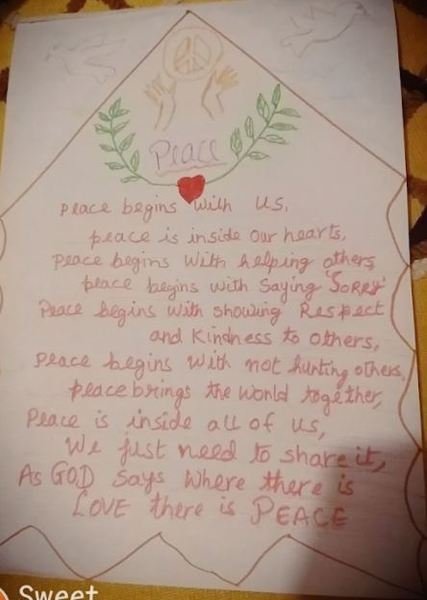 Peace
Peace begins with us,
peace is inside our hearts,
peace begins with helping others,
peace begins with saying 'SORRY'
Peace begins with showing Respect
and kindness to others,
peace begins with not hunting others,
peace brings the world together,
Peace is inside all of us,
We just need to share it,
As GOD says where there is
LOVE there is PEACE
Sweet